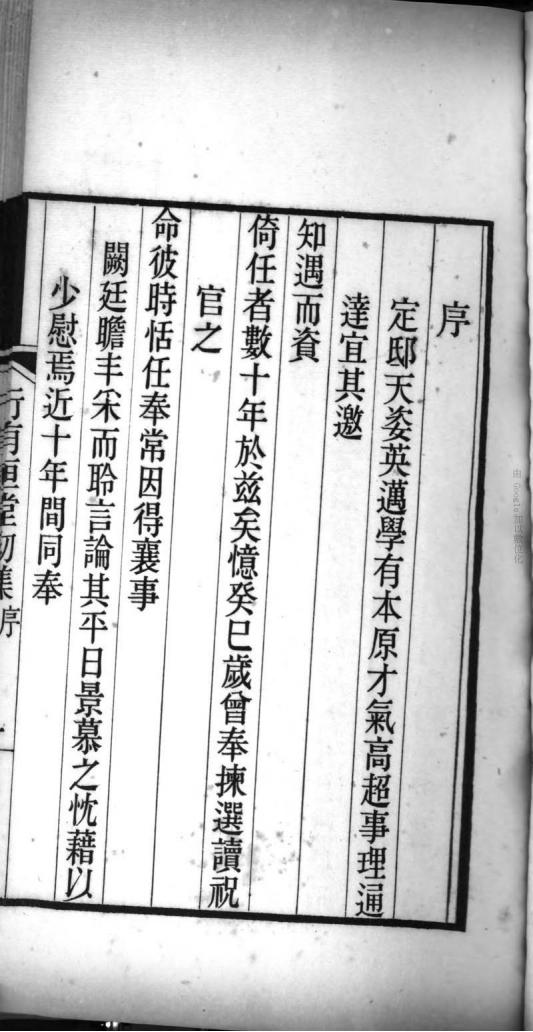 序
定邸天姿英邁學有本原才氣高超事理通
達宜其邀
知遇而資
倚任者數十年於兹矣憶癸巳歲曾奉揀選讀祝
官之
命彼時恬任奉常因得襄事
闕廷瞻丰采而聆言論其平日景慕之忱藉以
少慰焉近十年間同奉
行有恒堂初集 序
由 Google 加以數位化